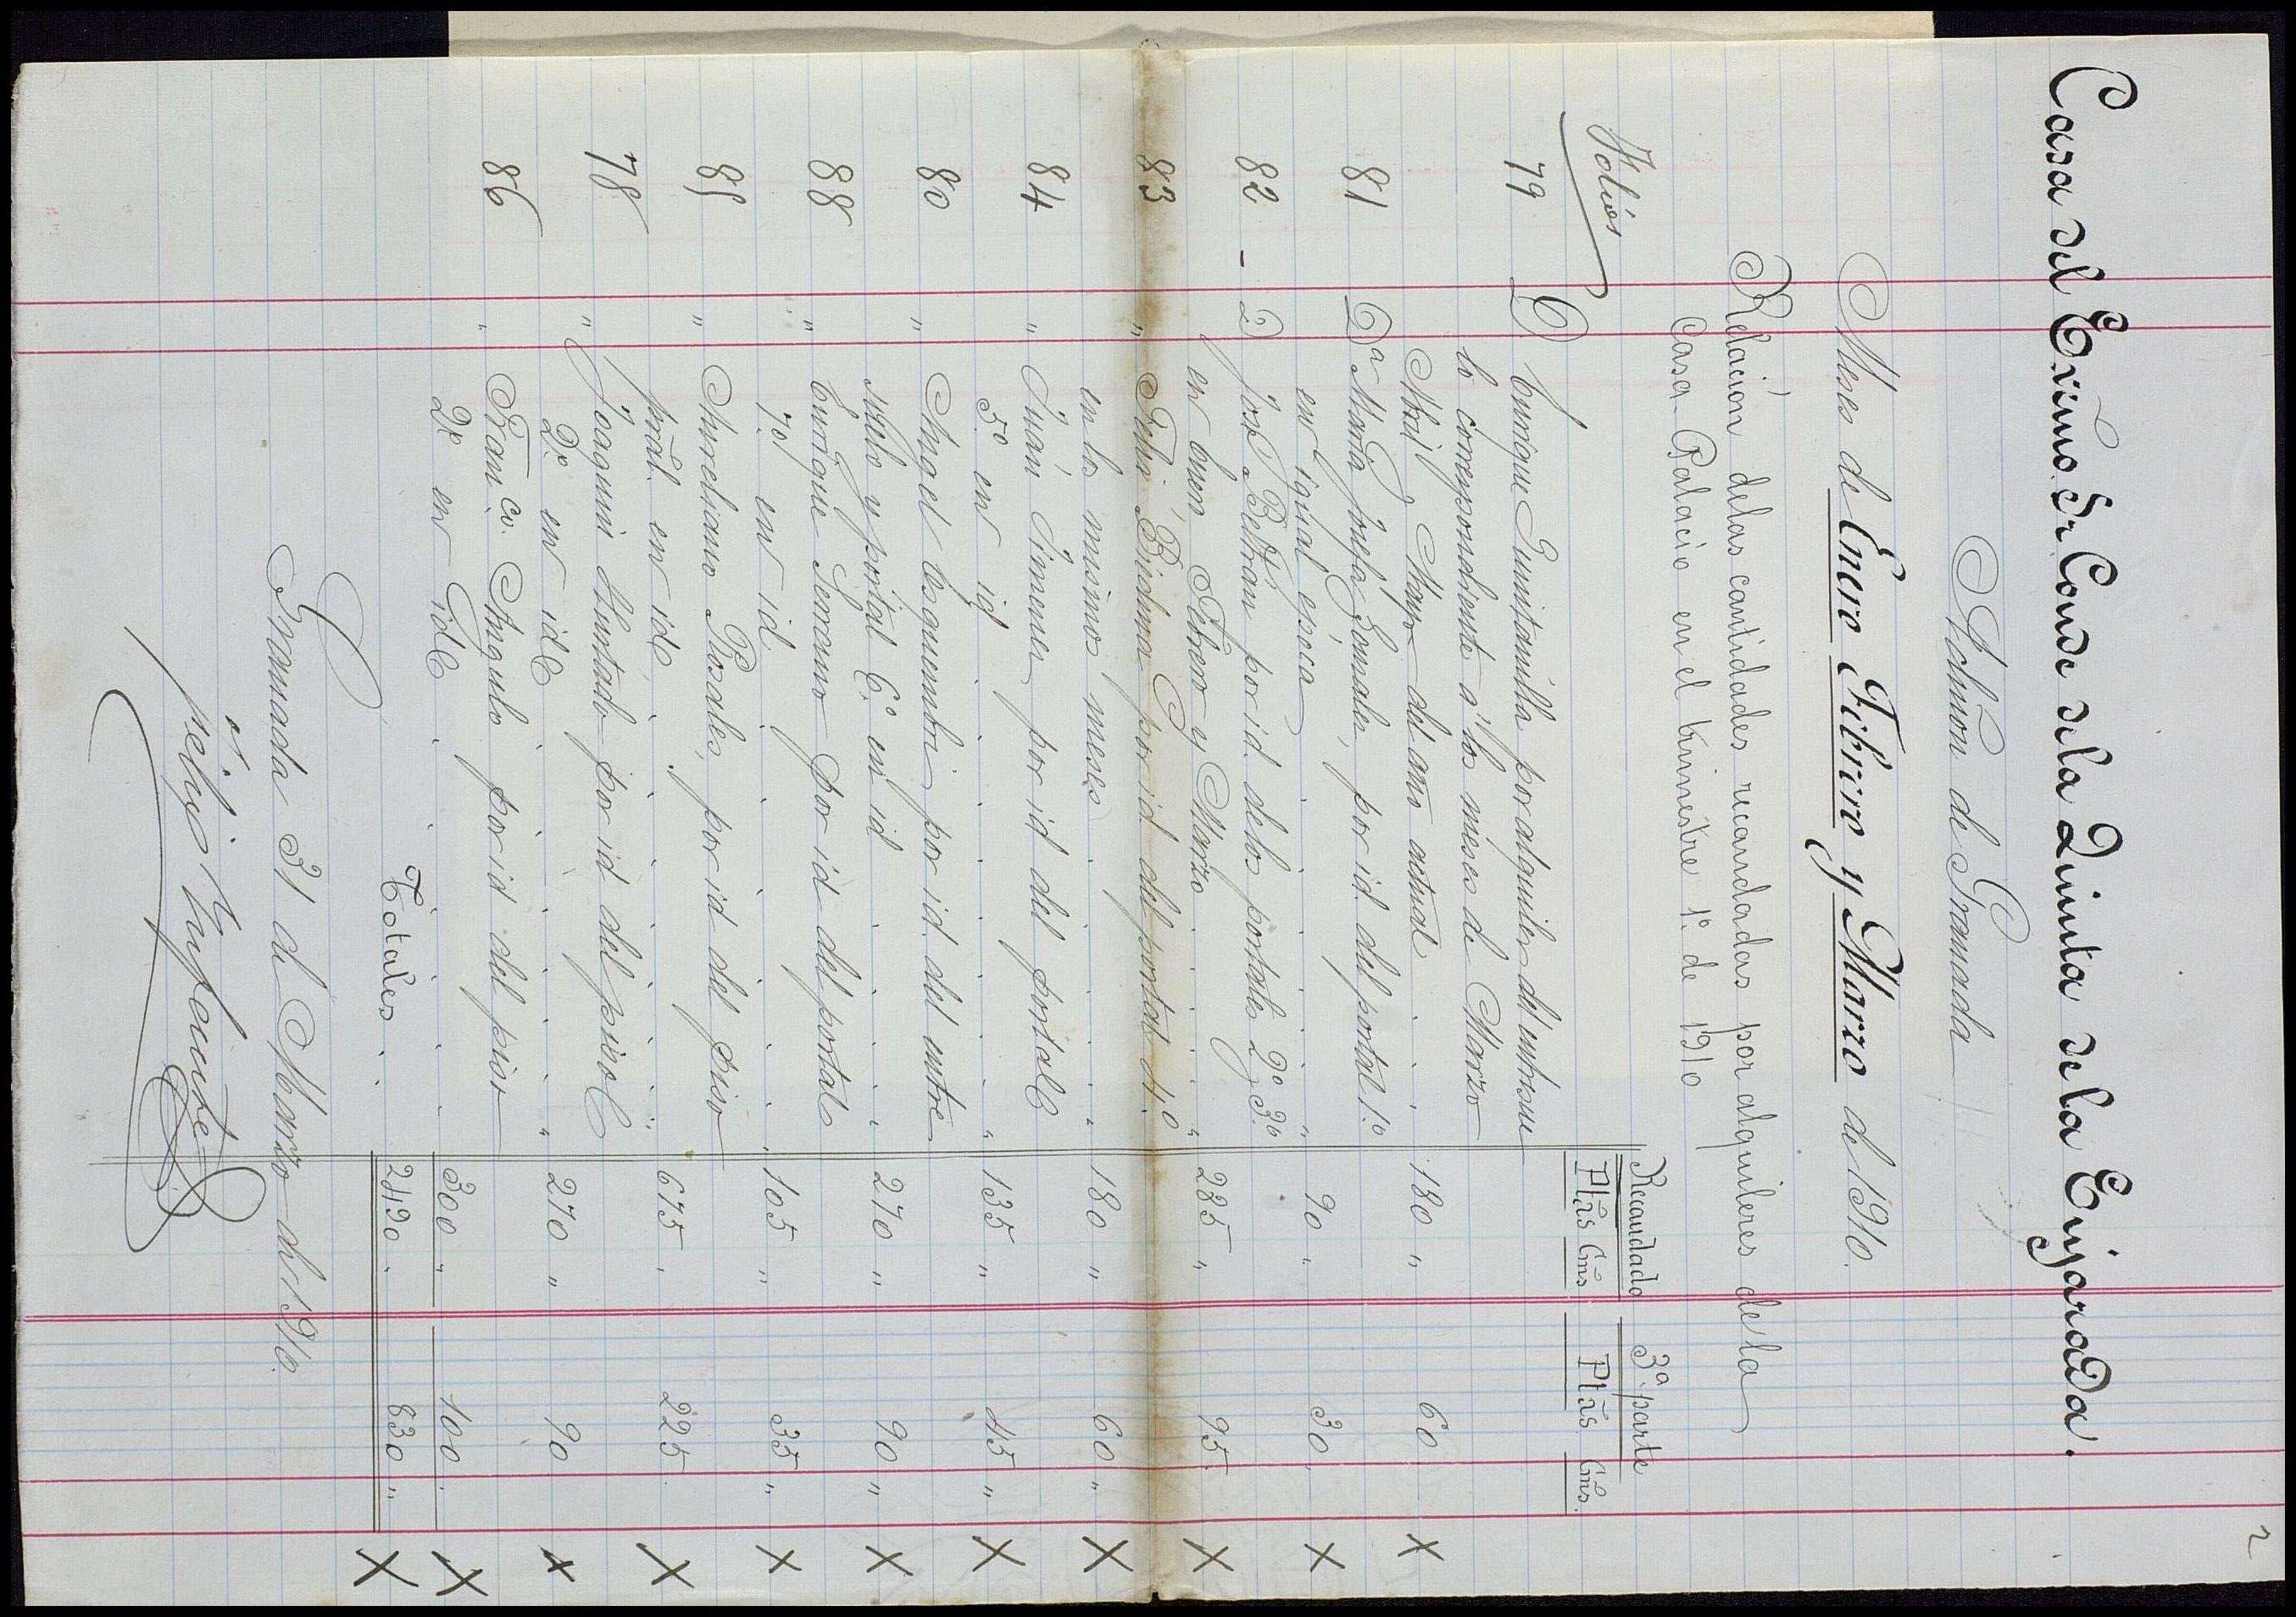 2
Casa del Excmo. Sr. Conde de la Quinta de la Enjarada.
Admon de Granada
Mes de Enero Febrero y Marzo de 1910.
Relación de las cantidades recaudadas por alquileres de la
Casa-Palacio en el trimestre 1º. de 1910
Recaudado 3ª. parte
Folios Ptas Cms Ptas Cms.
79 D Enrique Quintanilla por alquiler del entresu
lo correspondiente a los meses de Marzo
Abril y Mayo del año actual 180 " 60 X
81 Dª Maria Josefa Gonzalez, por id. del portal 1.º
en igual época 90 " 30 X
82 - D José Beltrán por id. de los portales 2º y 3.º
en Enero, Febrero y Marzo " 285 " 95 X
83 " Julio Biedma por id del portal 4.º
en los mismos meses " 180 " 60 " X
84 " Juán Jimenez por id del portal
5º en id " 135 " 45 " X
80 " Angel Esquembri por id. del entre
suelo y portal 6.º en id " 270 " 90 " X
88 " Enrique Serrano por id del portal
7º. en id. " 105 " 35 " X
85 " Aureliano Rosales, por id del piso
pral. en id. " 675 " 225. X
78 " Joaquin Hurtado por id del piso
2º. en id " 270 " 90 X
86 " Franco. Angulo por id del piso
2º en id 300 " 100. X
Totales 2490. 830 " X
Granada 31 de Marzo de 1910.
Felix Infante